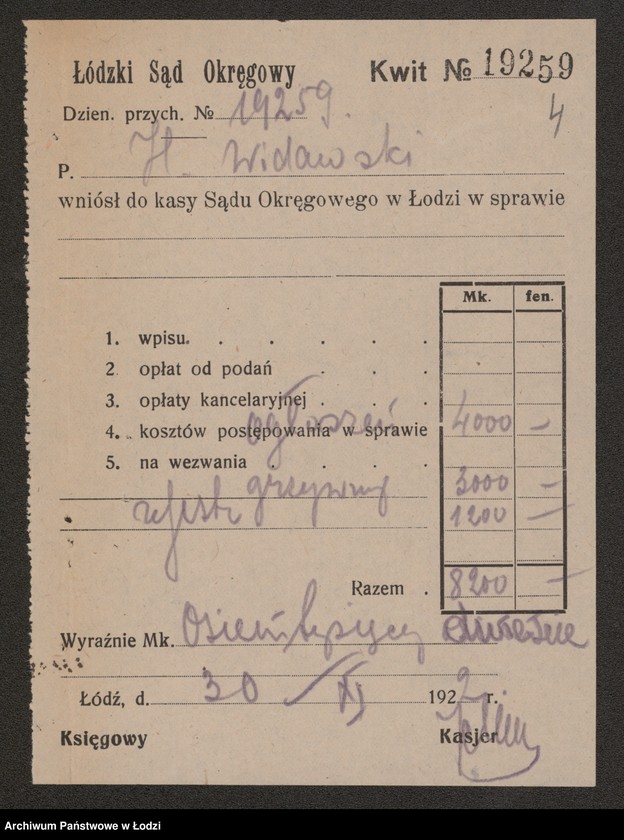 Łódzki Sąd Okręgowy Kwit № 19259
Dzien. przych. № 19259. 4
P. H. Widawski
wniósł do kasy Sądu Okręgowego w Łodzi w sprawie
Mk. fen.
1. wpisu. . . . . .
2 opłat od podań . . .
3. opłaty kancelaryjnej . . .
ogłoszeń
4. kosztów postępowania w sprawie 4000 —
5. na wezwania . . . .
grzywny 3000 —
rejestr 1200 —
Razem . 8200 —
Wyraźnie Mk. Osiem tysięcy dwieście
Łódź, d. 30/XI 1922 r.
Księgowy Kasjer
Archiwum Państwowe w Łodzi